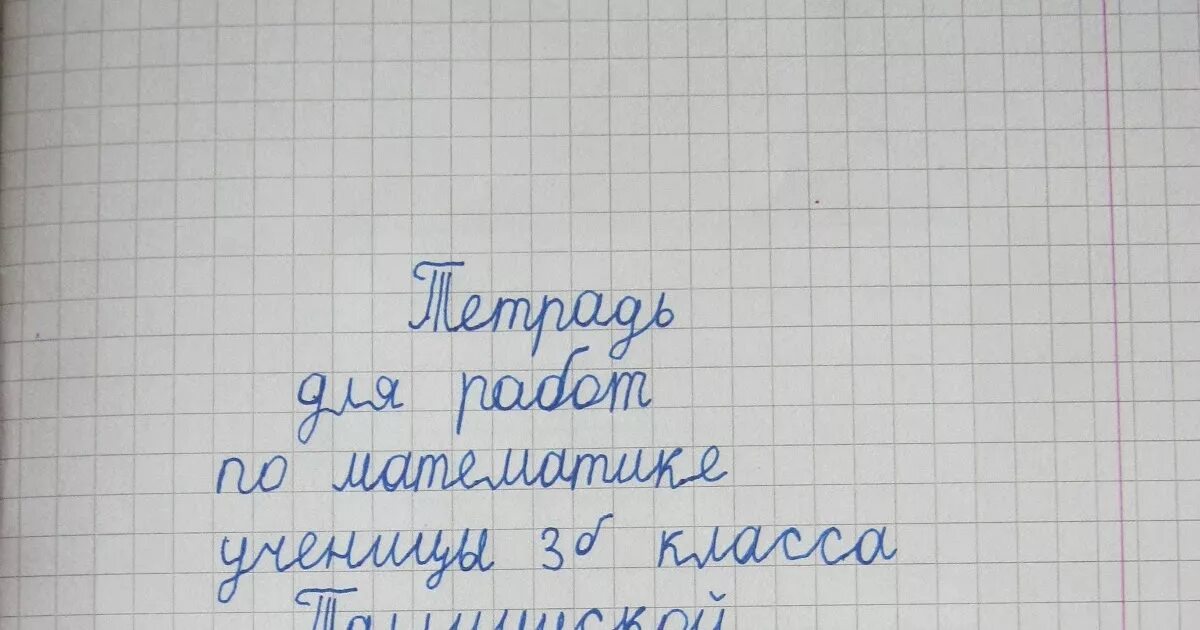 Тетрадь
для работ
по математике
ученицы 3б класса